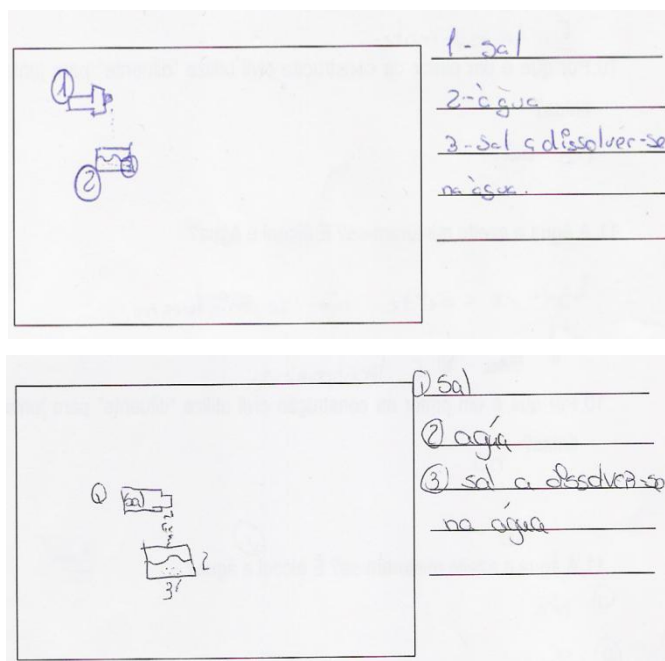 1-Sal
2-àgua
3-Sal a dissolver-se
na àgua.
1
2
3
① Sal
② agúa
③ sal a dissolver-se
na água
①
Sal
2
3